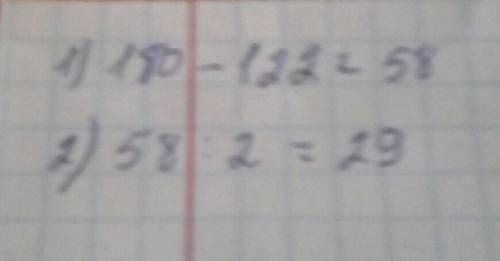 1) 180 - 122 = 58
2) 58 : 2 = 29